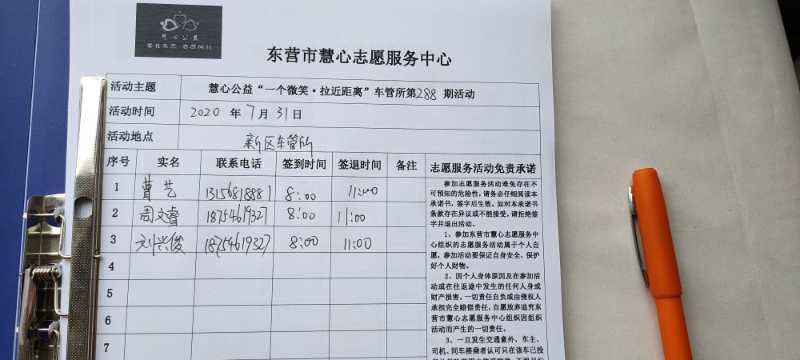 慧心公益
东营市慧心志愿服务中心
活动主题 慧心公益“一个微笑·拉近距离”车管所第288期活动
活动时间 2020年7月31日
活动地点 新区车管所
序号 实名 联系电话 签到时间 签退时间 备注 志愿服务活动免责承诺
1 曹艺 13156818881 8:00 11:00
2 周文睿 18754619327 8:00 11:00
3 刘兴俊 18754619327 8:00 11:00
4
5
6
7
参加志愿服务活动难免存在不
可预知的危险性,请务必仔细阅读本
承诺书,签字后生效。如对本承诺书
条款存在异议或不能接受,请拒绝签
字并退出活动。
1、参加东营市慧心志愿服务中
心组织的志愿服务活动属于个人自
愿。参加活动要保证自身安全,保护
好个人财物。
2、因个人身体原因及在参加活
动或在往返途中发生的任何人身或
财产损害,一切责任自负或由侵权人
承担完全赔偿责任,自愿放弃追究东
营市慧心志愿服务中心组织因组织
活动而产生的一切责任。
3、一旦发生交通意外,车主、
司机、同车搭乘者认可只在该车已投